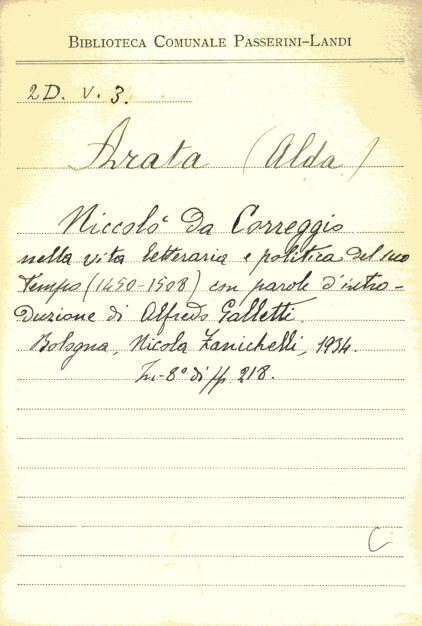 BIBLIOTECA COMUNALE PASSERINI-LANDI
2D. V. 3.
Arata (Alda)
Niccolò da Correggio
nella vita letteraria e politica del suo
tempo (1450-1508) con parole d'intro-
duzione di Alfredo Galletti.
Bologna, Nicola Zanichelli, 1934.
In-8° di pp. 218.
C